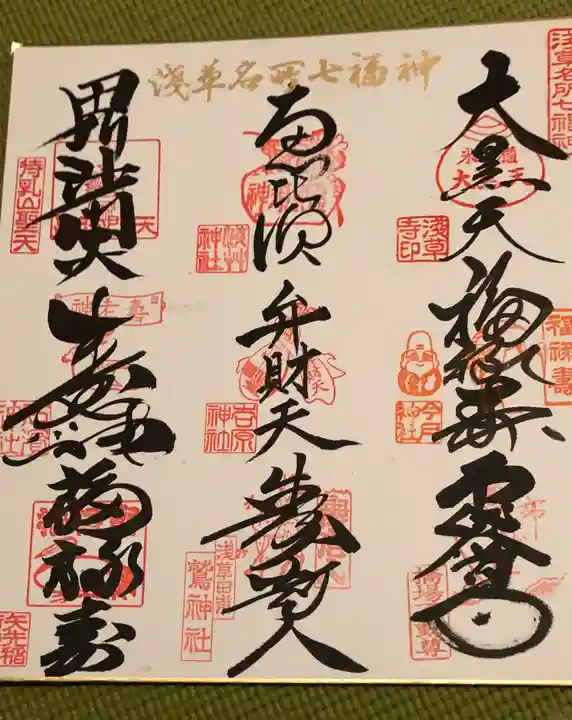 浅草名所七福神
浅草名所七福神
大黒天
浅草
寺印
福禄寿
福禄寿
今戸
神社
布袋尊
恵比須
浅草
神社
弁財天
吉原
神社
寿老人
浅草田甫
鷲神社
毘沙門天
待乳山聖天
寿老神
石浜
神社
福禄寿
矢先稲